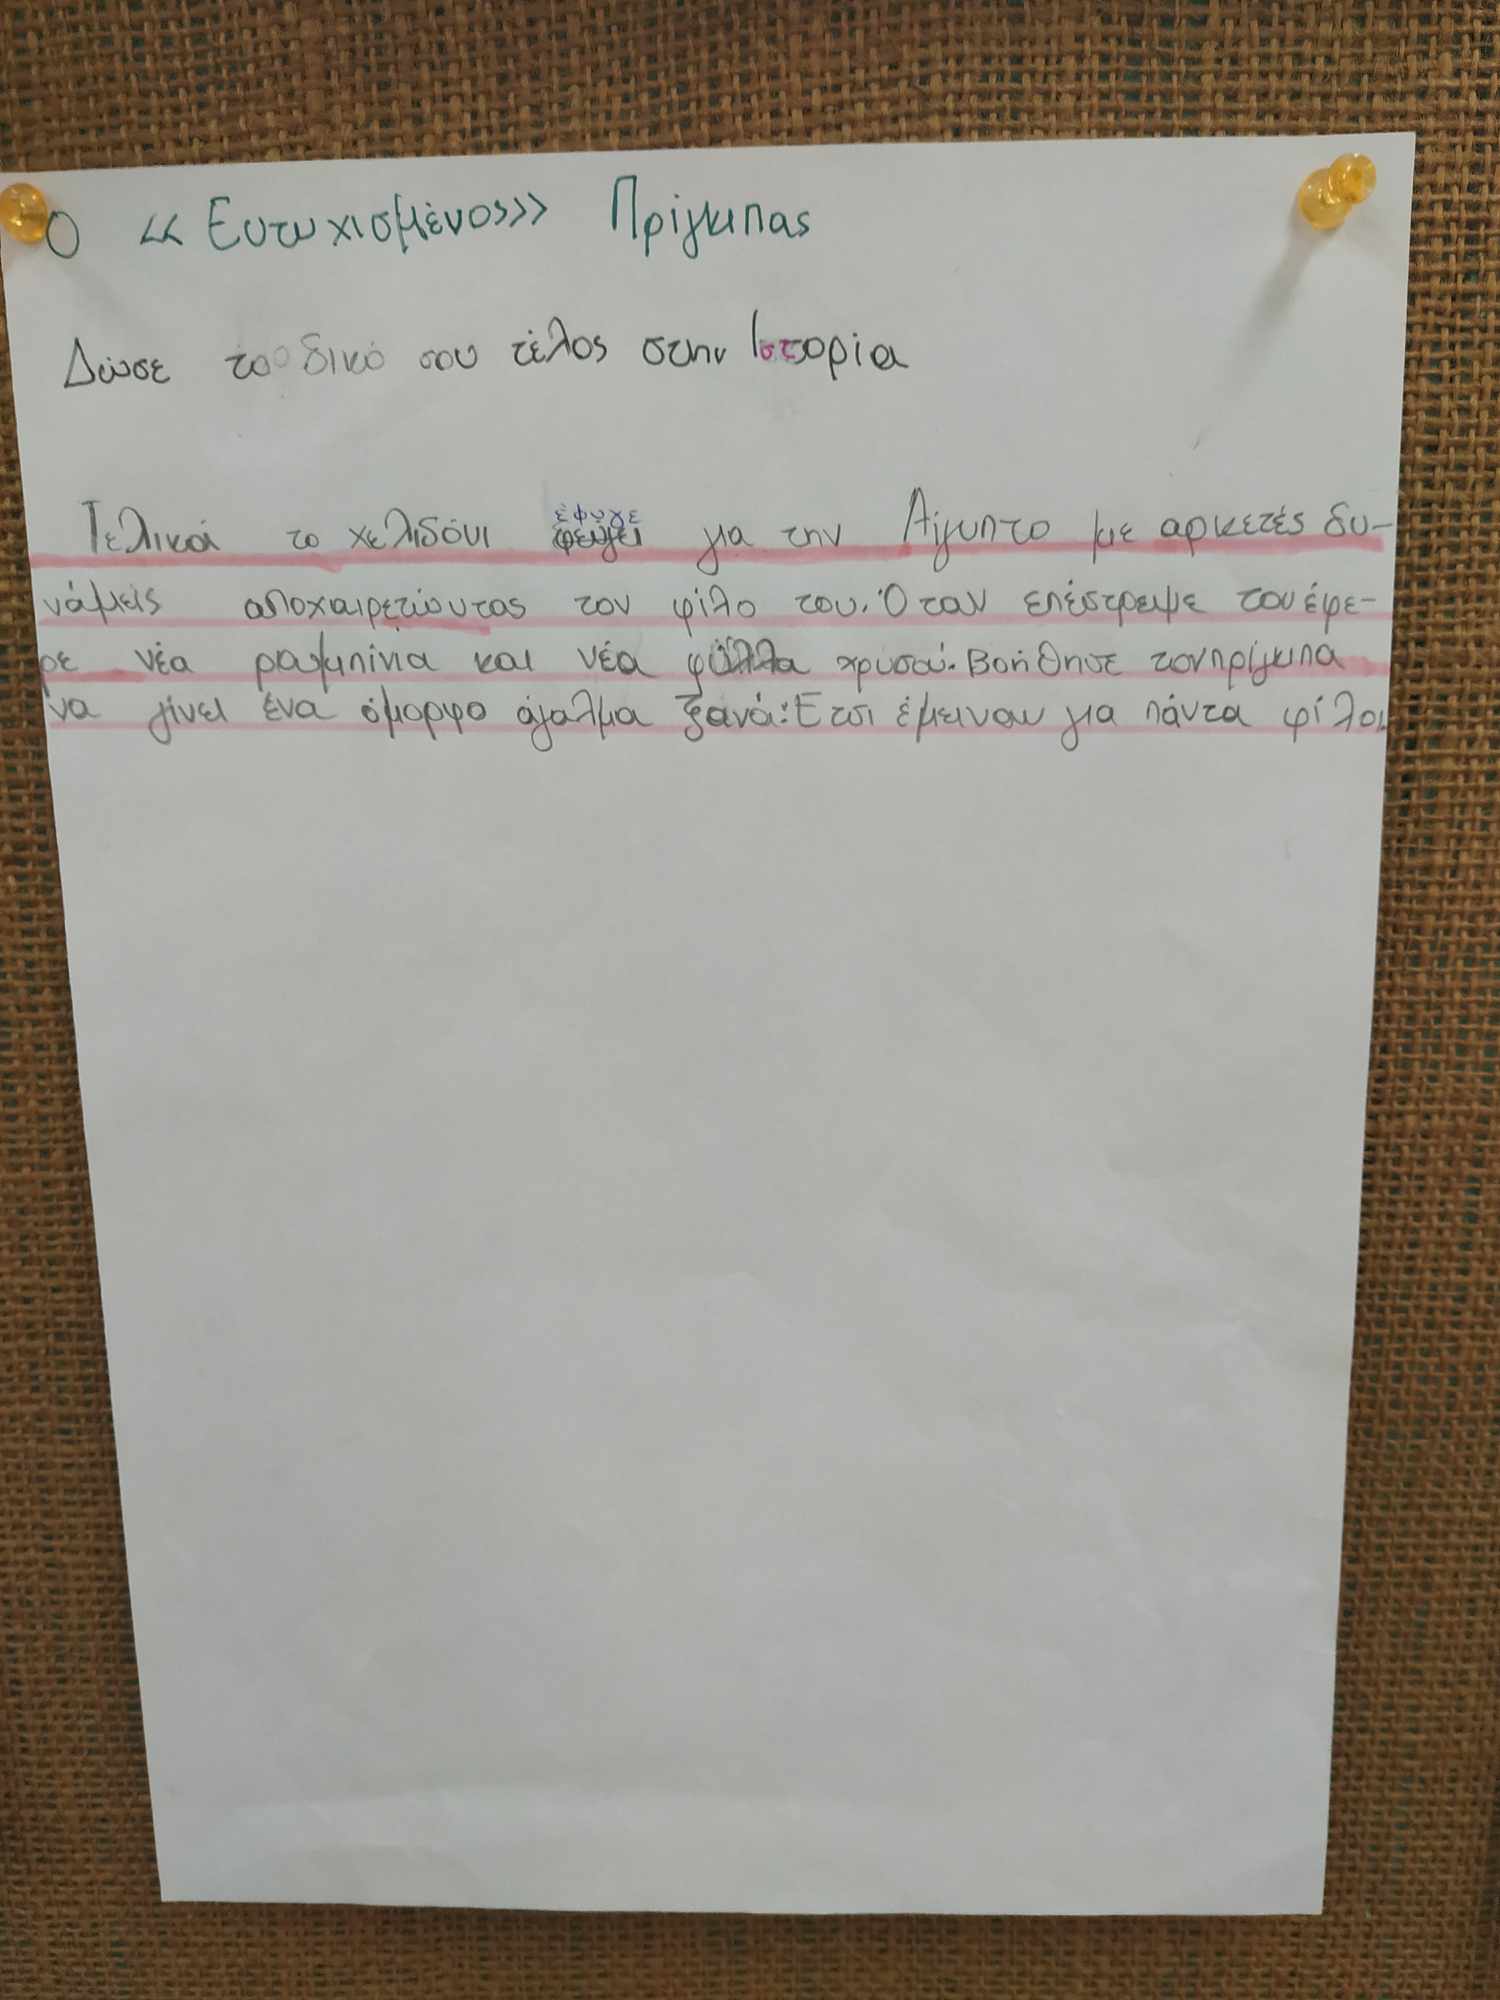 Ο << Ευτυχισμένος>> Πρίγκιπας
Δώσε το δικό σου τέλος στην Ιστορία
έφυγε
Τελικά το χελιδόνι φεύγει για την Αίγυπτο με αρκετές δυ-
νάμεις αποχαιρετώντας τον φίλο του. Όταν επέστρεψε του έφε-
ρε νέα ρουμπίνια και νέα φύλλα χρυσού. Βοήθησε τον πρίγκιπα
να γίνει ένα όμορφο άγαλμα ξανά. Έτσι έμειναν για πάντα φίλοι.